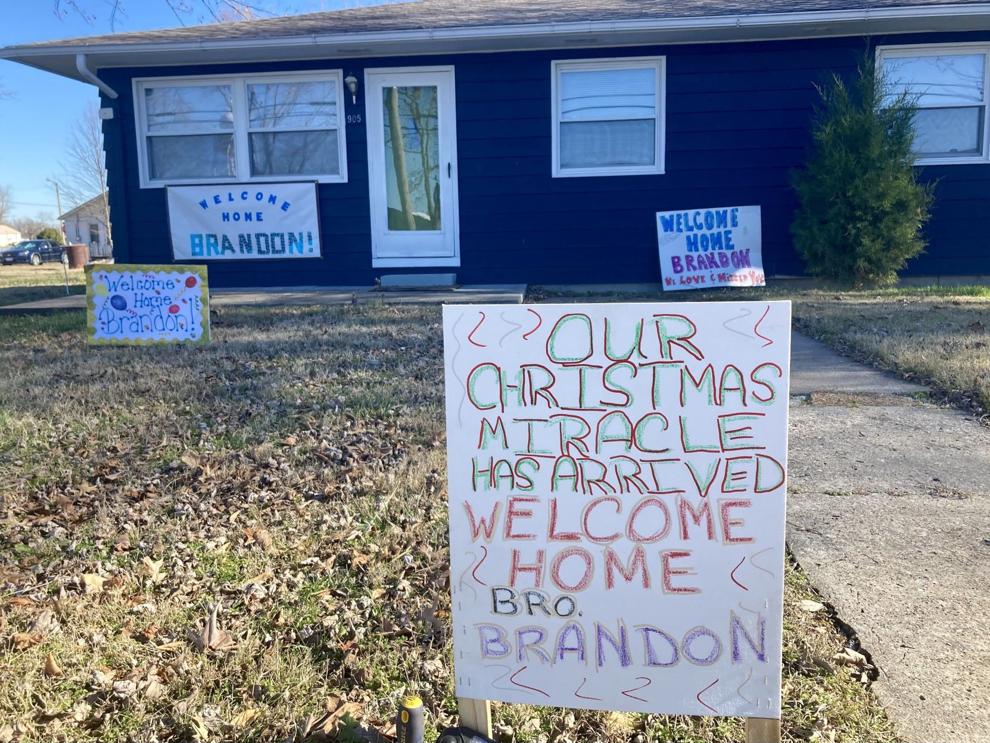 905
WELCOME
HOME
BRANDON!
WELCOME
HOME
BRANDON
WE LOVE & MISSED YOU
Welcome
Home
Brandon!
OUR
CHRISTMAS
MIRACLE
HAS ARRIVED
WELCOME
HOME
BRO.
BRANDON